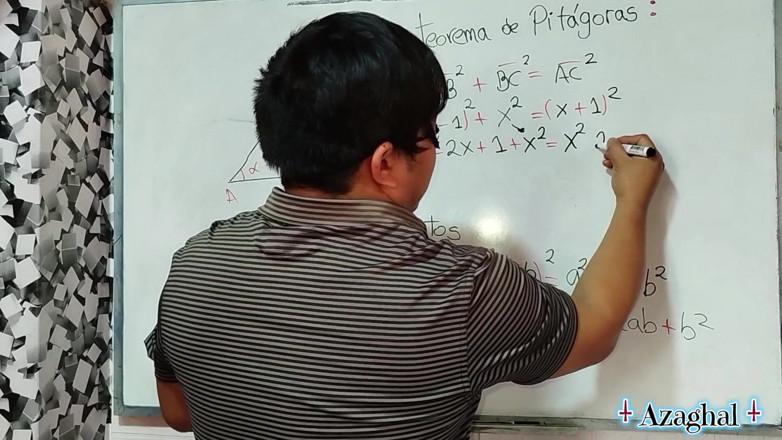 teorema de Pitágoras :
B² + BC² = AC²
1)² + x² = (x + 1)²
2x + 1 + x² = x² 2
α
A
tos
b)² = a² b²
2ab + b²
Azaghal